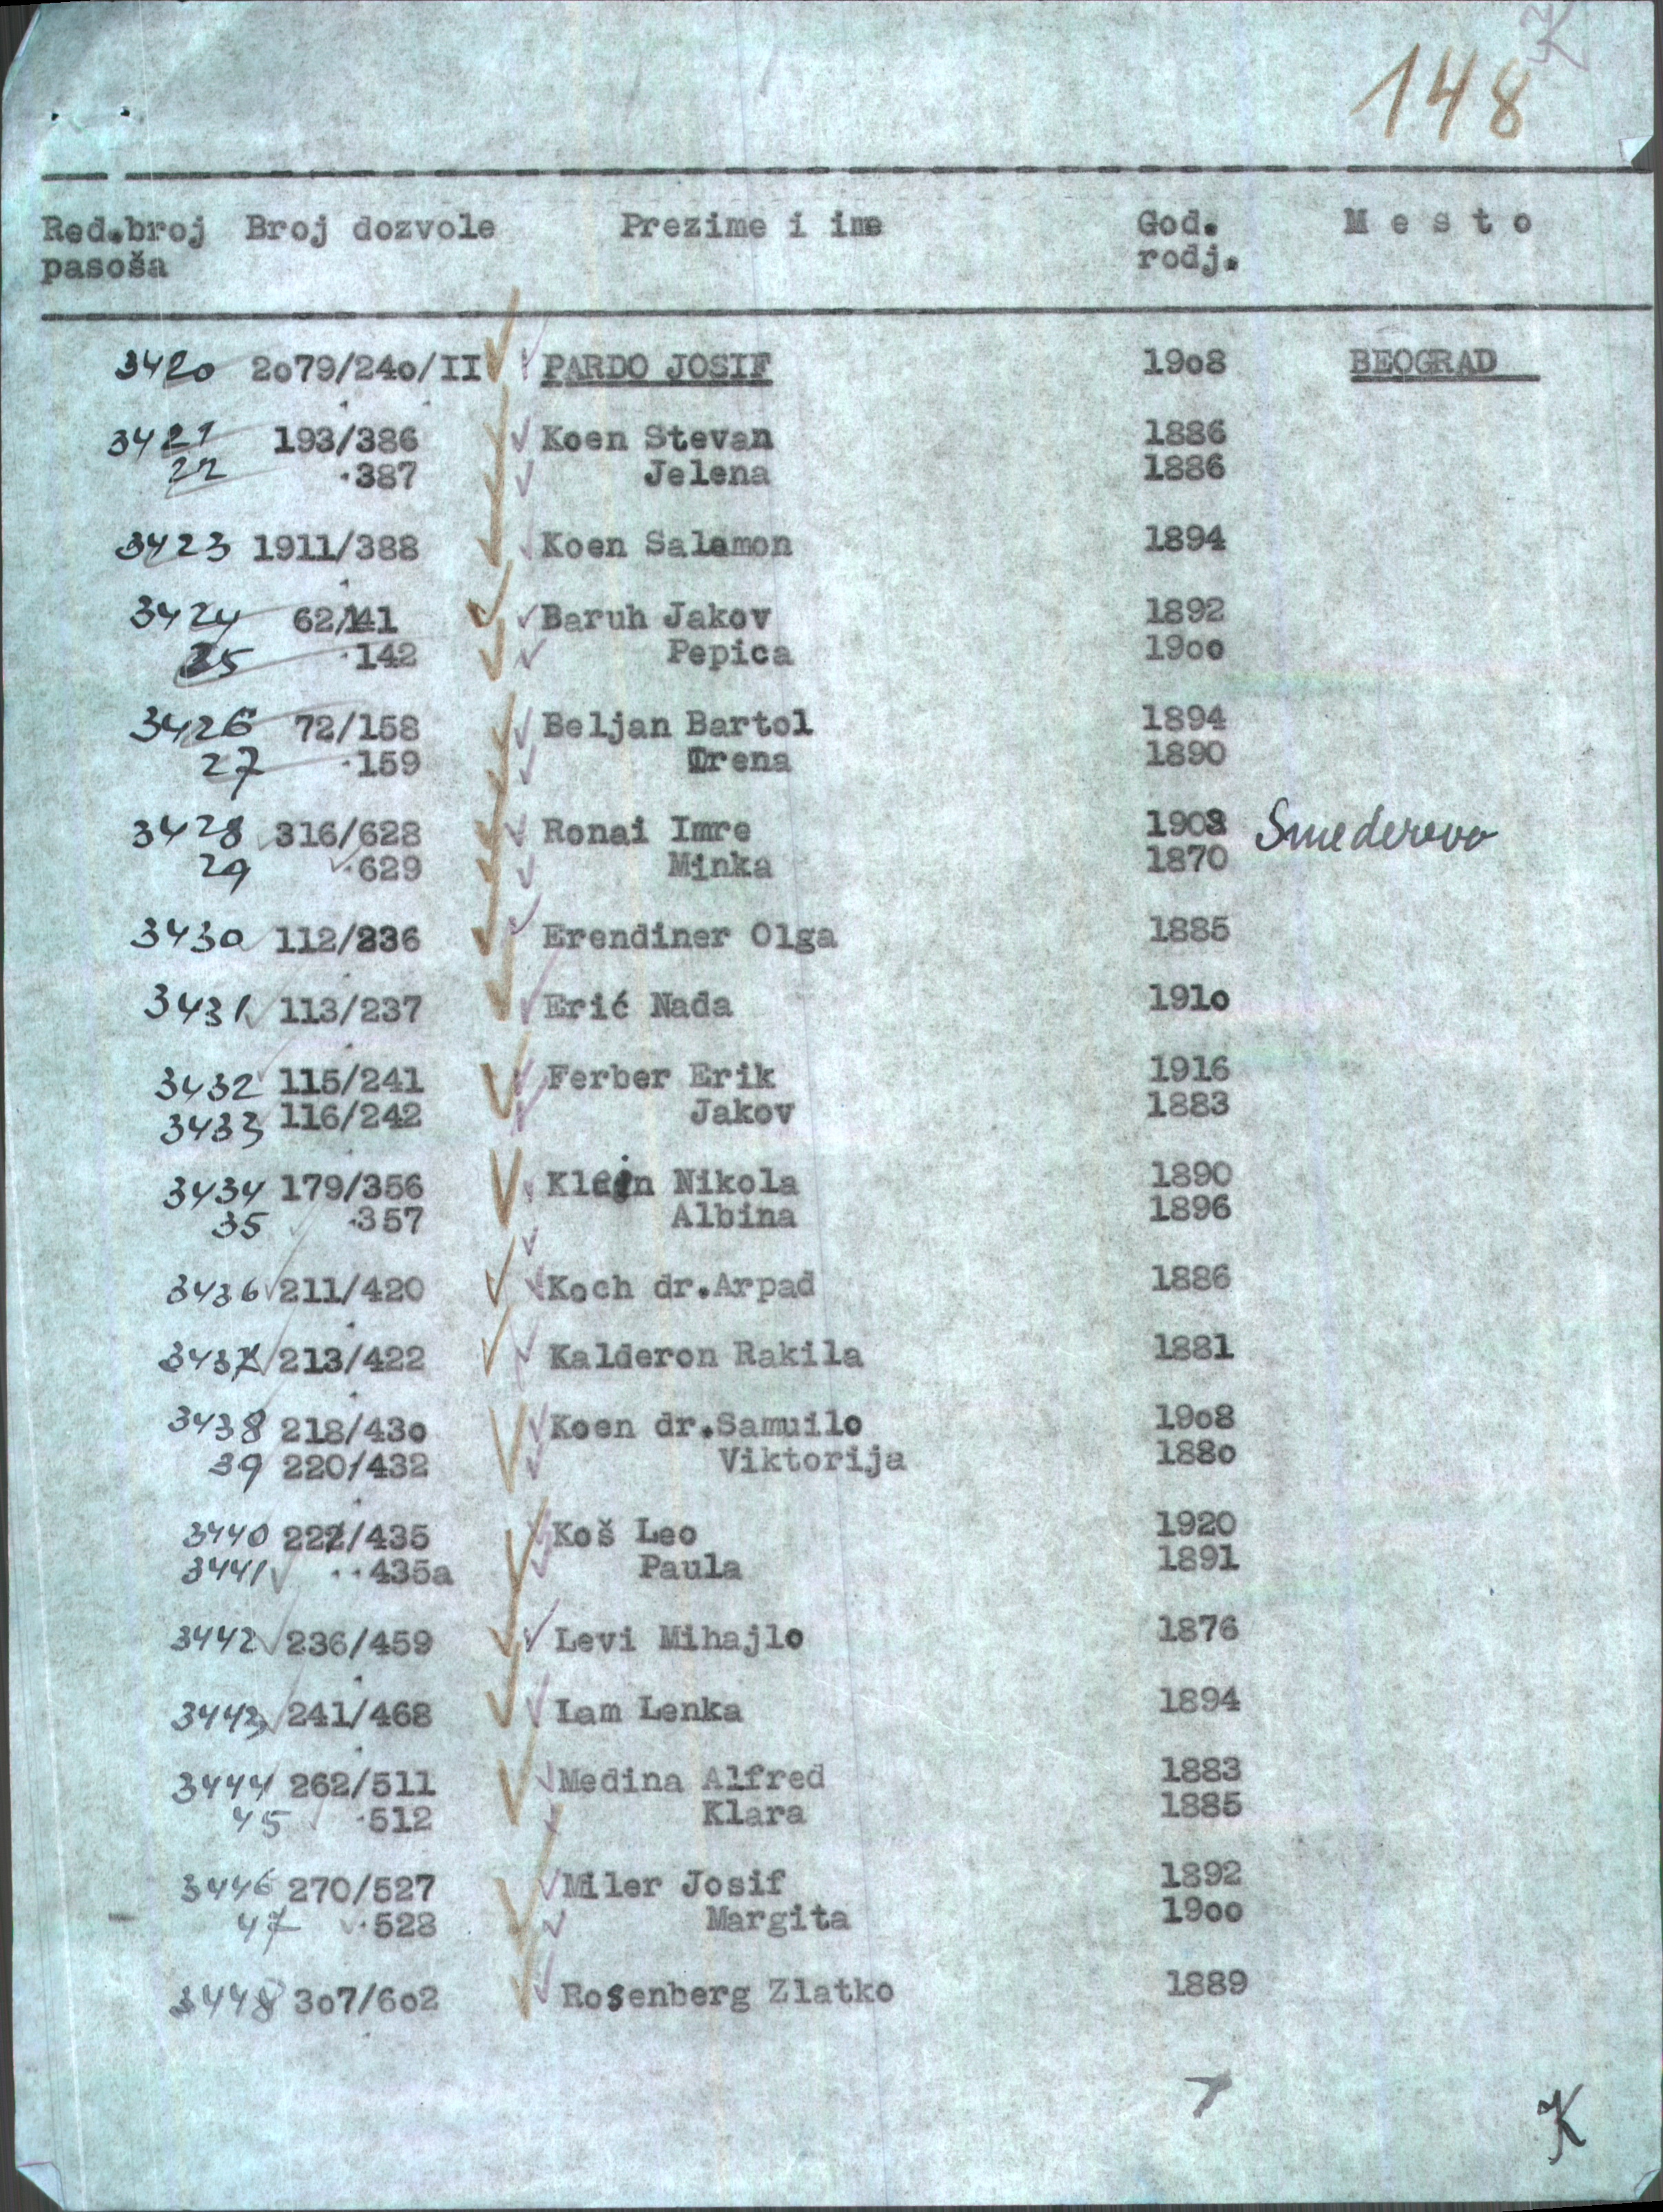 K
148
Red.broj Broj dozvole Prezime i ime God. M e s t o
pasoša rodj.
3420 2o79/24o/II PARDO JOSIF 19o8 BEOGRAD
3421 193/386 Koen Stevan 1886
22 387 Jelena 1886
3423 1911/388 Koen Salamon 1894
3424 62/141 Baruh Jakov 1892
25 142 Pepica 19oo
3426 72/158 Beljan Bartol 1894
27 159 Irena 1890
3428 316/628 Ronai Imre 1903 Smederevo
29 629 Minka 1870
3430 112/236 Erendiner Olga 1885
3431 113/237 Erić Nada 191o
3432 115/241 Ferber Erik 1916
3433 116/242 Jakov 1883
3434 179/356 Klejn Nikola 1890
35 357 Albina 1896
3436 211/420 Koch dr.Arpad 1886
3437 213/422 Kalderon Rakila 1881
3438 218/43o Koen dr.Samuilo 19o8
39 220/432 Viktorija 188o
3440 222/435 Koš Leo 1920
3441 435a Paula 1891
3442 236/459 Levi Mihajlo 1876
3443 241/468 Lam Lenka 1894
3444 262/511 Medina Alfred 1883
45 512 Klara 1885
3446 270/527 Miler Josif 1892
47 528 Margita 19oo
3448 3o7/6o2 Rosenberg Zlatko 1889
K